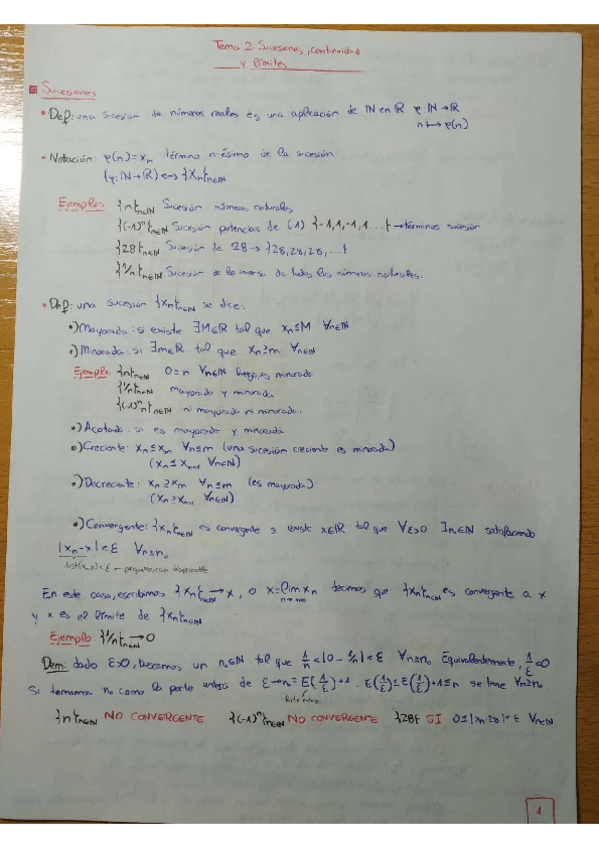 Tema 2: Sucesiones, continuidad
y límites
Sucesiones
• Def: una sucesión de números reales es una aplicación de ℕ en ℝ φ: ℕ → ℝ
n ↦ φ(n)
• Notación: φ(n) = xₙ término n-ésimo de la sucesión
(φ: ℕ → ℝ) ↔ {xₙ}ₙ∈ℕ
Ejemplos: {n}ₙ∈ℕ Sucesión números naturales
{(-1)ⁿ}ₙ∈ℕ Sucesión potencias de (-1) {-1,1,-1,1 ...} → términos sucesión
{28}ₙ∈ℕ Sucesión de 28 → {28,28,28,...}
{1/n}ₙ∈ℕ Sucesión de la inversa de todos los números naturales.
• Def: una sucesión {xₙ}ₙ∈ℕ se dice:
•) Mayorada: si existe ∃M∈ℝ tal que xₙ≤M ∀n∈ℕ
•) Minorada: si ∃m∈ℝ tal que xₙ≥m ∀n∈ℕ
Ejemplo: {n}ₙ∈ℕ 0≤n ∀n∈ℕ luego, es minorada
{1/n}ₙ∈ℕ mayorada y minorada
{(-1)ⁿn}ₙ∈ℕ ni mayorada ni minorada.
•) Acotada: si es mayorada y minorada
•) Creciente: xₙ≤xₘ ∀n≤m (una sucesión creciente es minorada)
(xₙ≤xₙ₊₁ ∀n∈ℕ)
•) Decreciente: xₙ≥xₘ ∀n≤m (es mayorada)
(xₙ≥xₙ₊₁ ∀n∈ℕ)
•) Convergente: {xₙ}ₙ∈ℕ es convergente si existe x∈ℝ tal que ∀ε>0 ∃n₀∈ℕ satisfaciendo
|xₙ-x|<ε ∀n≥n₀
pequeño, casi
En este caso, escribimos {xₙ}ₙ∈ℕ → x, o x = lim xₙ decimos que {xₙ}ₙ∈ℕ es convergente a x
n→∞
y x es el límite de {xₙ}ₙ∈ℕ
Ejemplo {1/n}ₙ∈ℕ → 0
Dem: dado ε>0, buscamos un n₀∈ℕ tal que 1/n = |0 - 1/n| < ε ∀n≥n₀ Equivalentemente,
Si tomamos n₀ como la parte entera de ε → n₀ = E(1/ε)+1. se tiene ∀n≥n₀
{n}ₙ∈ℕ NO CONVERGENTE {(-1)ⁿ}ₙ∈ℕ NO CONVERGENTE {28} SI 0≤|xₙ-28|<ε ∀n∈ℕ
1